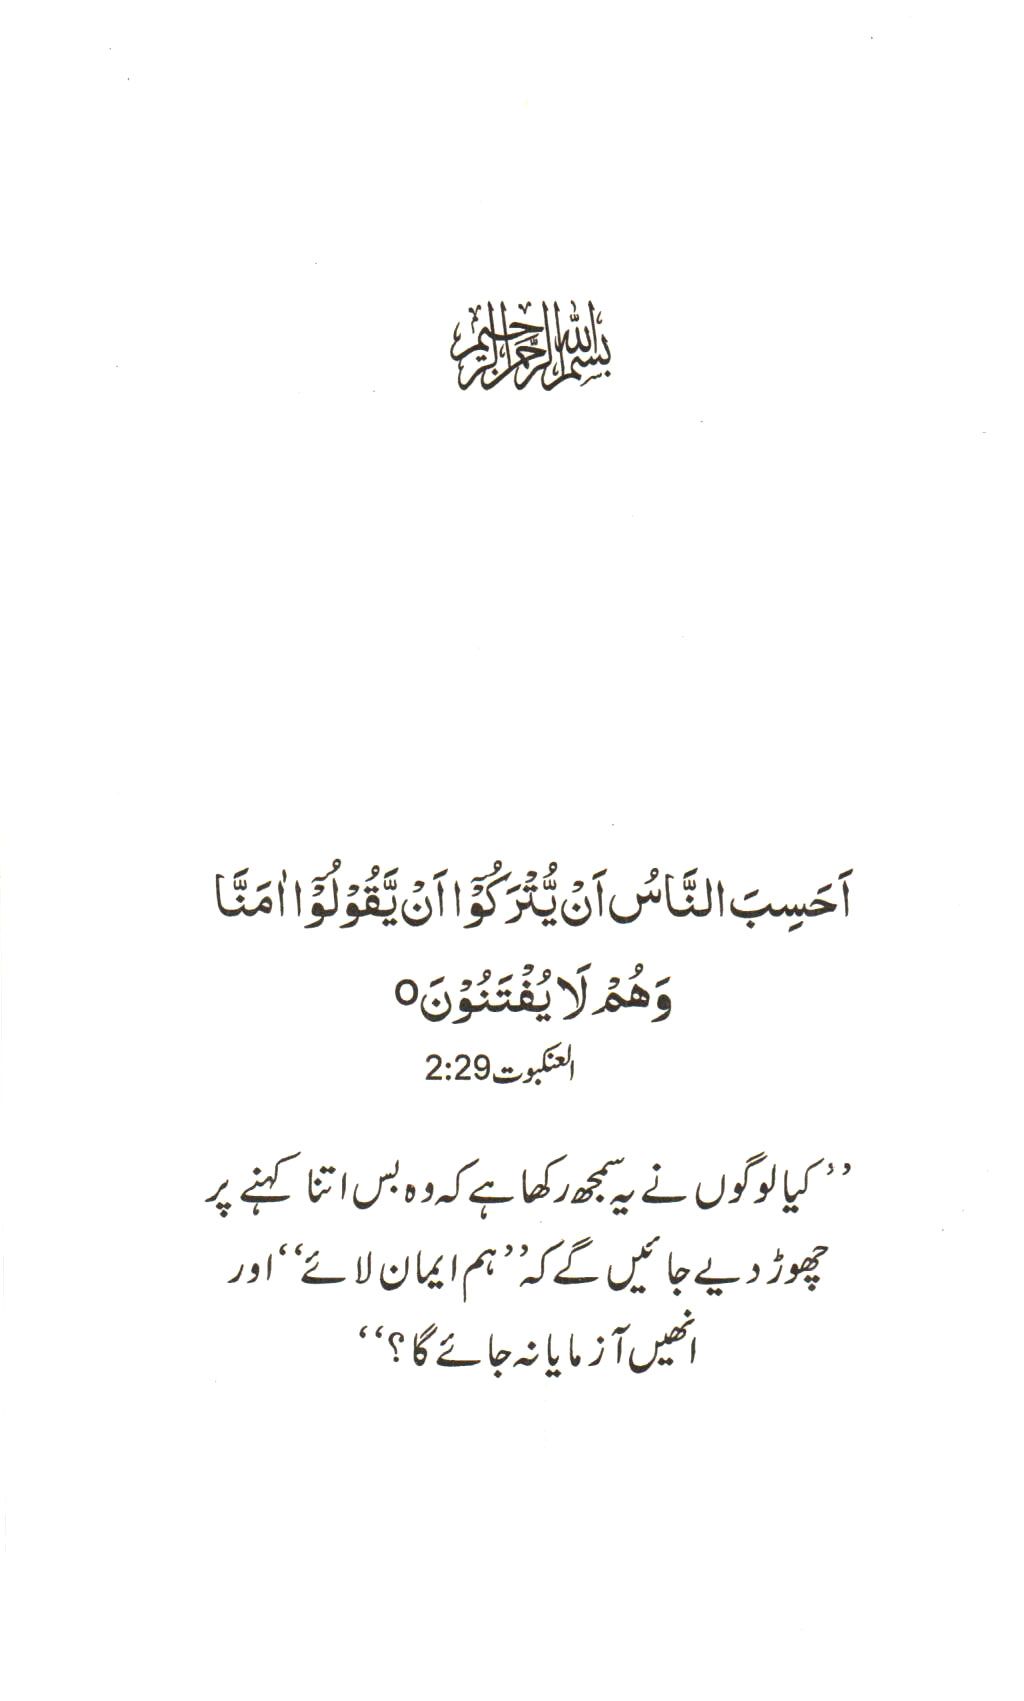 بسم الله الرحمن الرحيم
اَحَسِبَ النَّاسُ اَنْ يُّتْرَكُوْۤا اَنْ يَّقُوْلُوْۤا اٰمَنَّا
وَهُمْ لَا يُفْتَنُوْنَ o
العنکبوت 2:29
’’کیا لوگوں نے یہ سمجھ رکھا ہے کہ وہ بس اتنا کہنے پر
چھوڑ دیے جائیں گے کہ ’’ہم ایمان لائے‘‘ اور
انھیں آزمایا نہ جائے گا؟‘‘